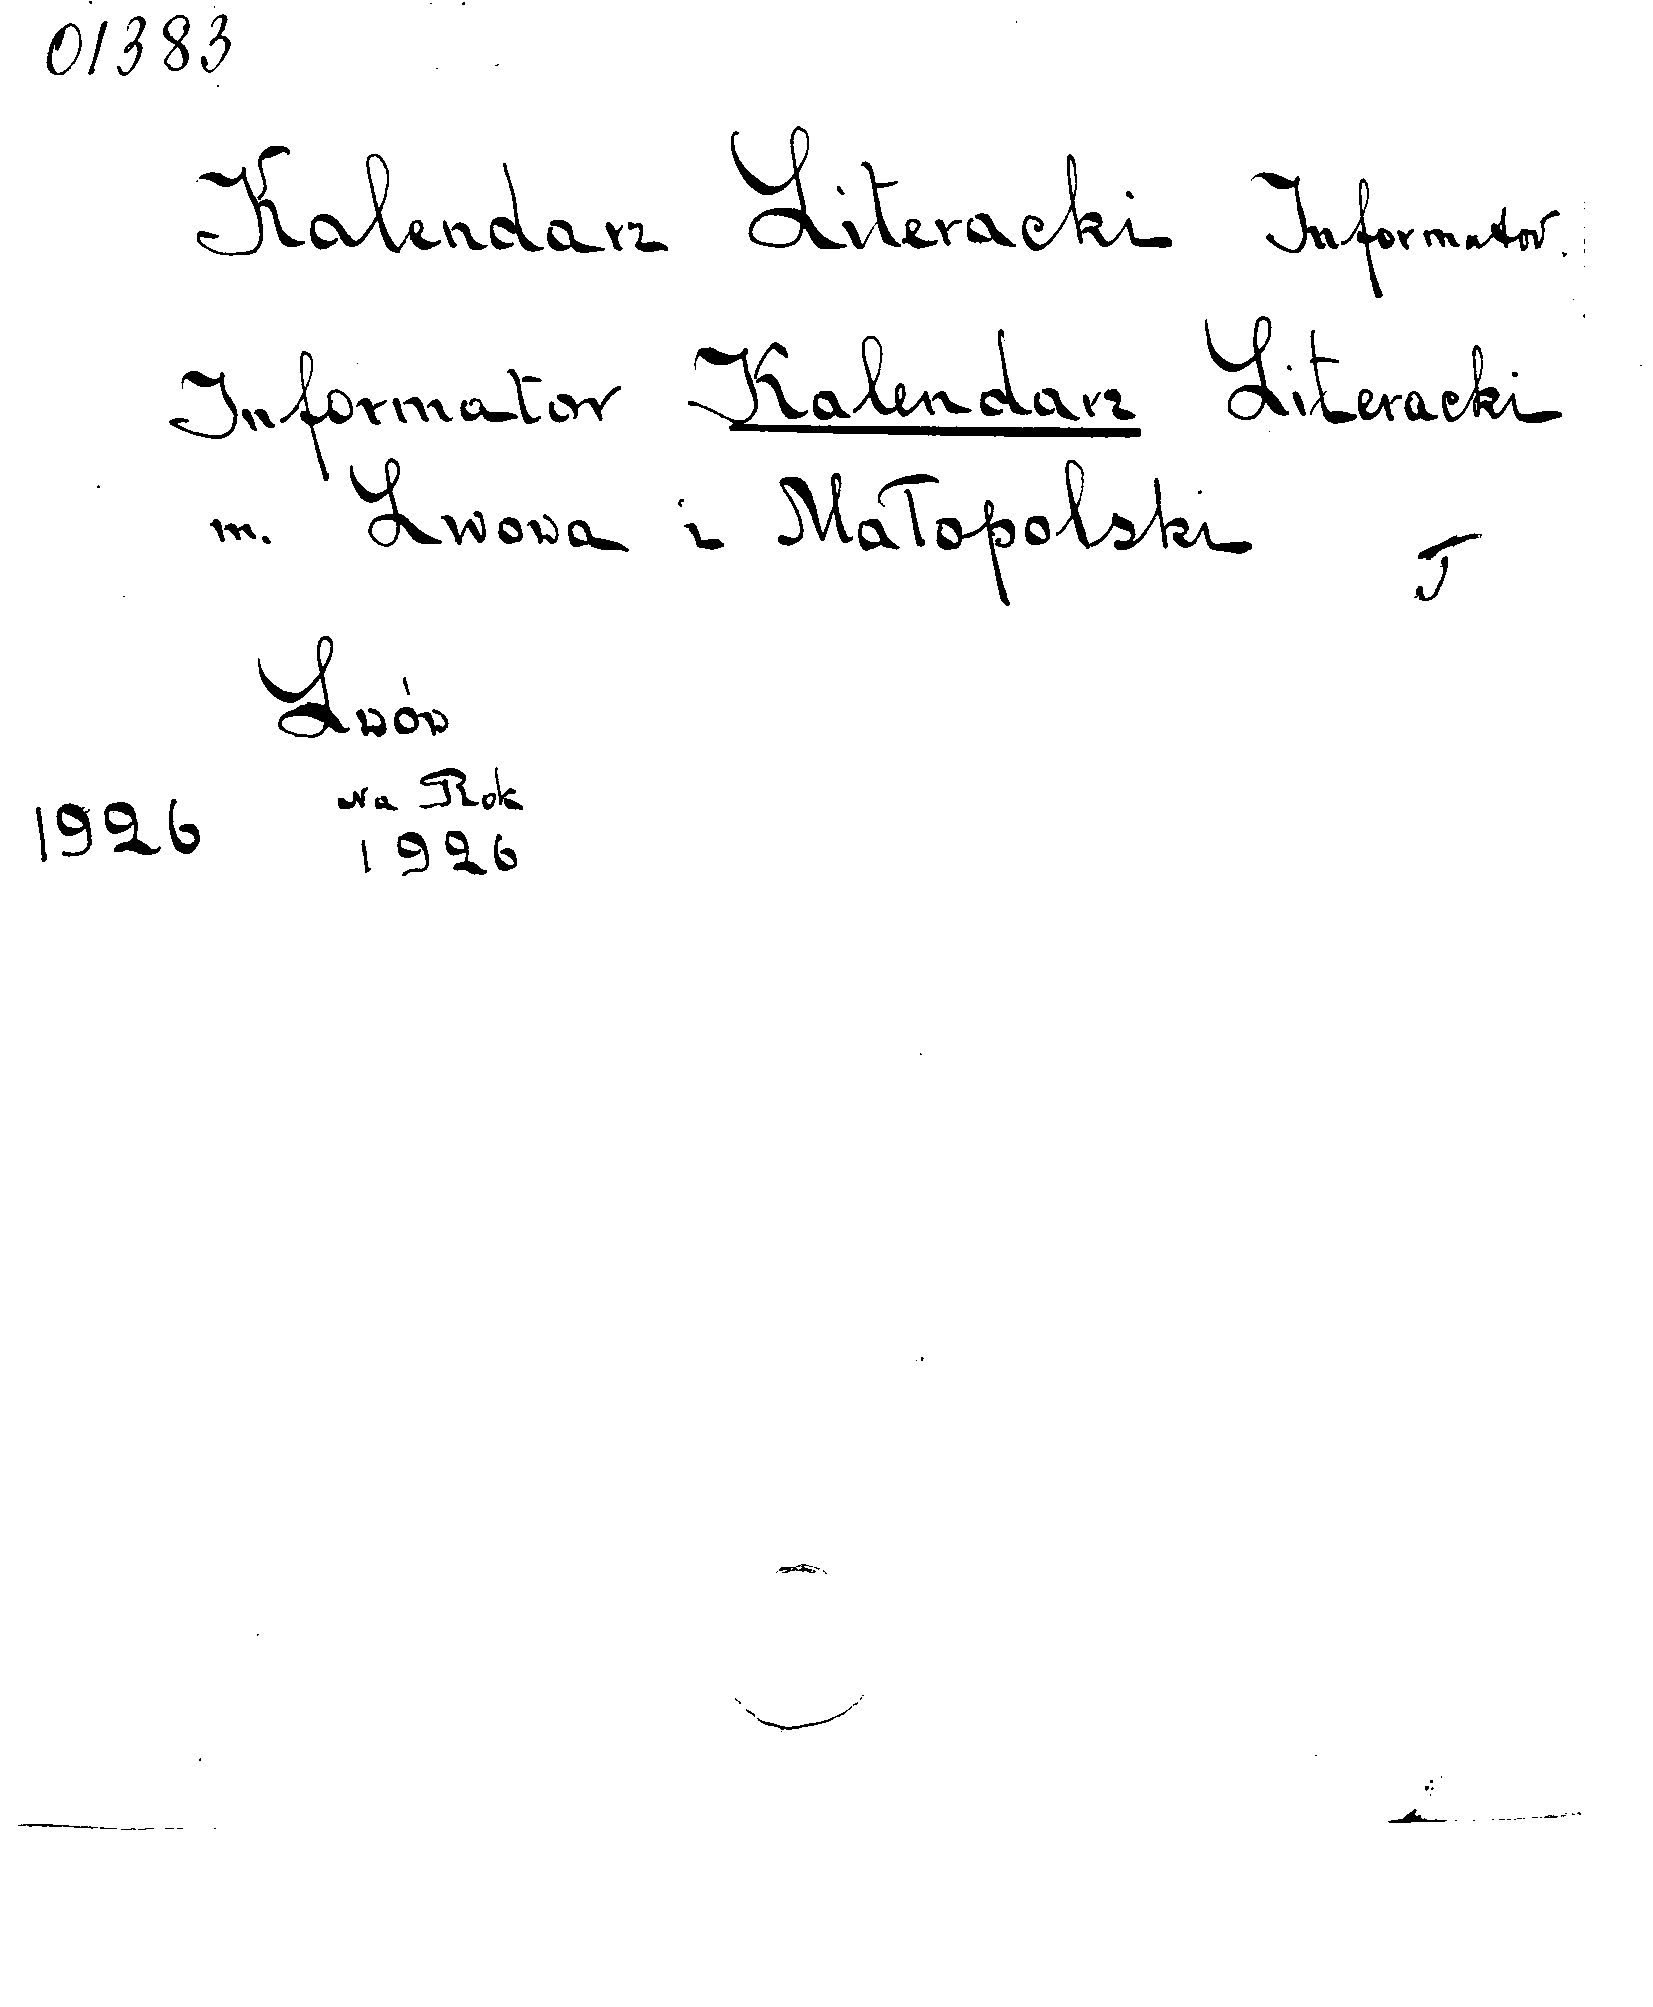 01383
Kalendarz Literacki Informator.
Informator Kalendarz Literacki
m. Lwowa i Małopolski
J
Lwów
na Rok
1926 1926